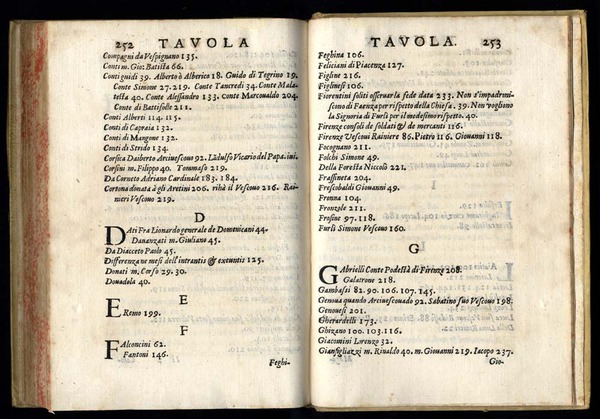 252 TAVOLA
Compagni da Vespignano 135.
Conti m. Gio: Batista 66.
Conti guidi 39. Alberto è Alberico 18. Guido di Tegrino 19.
Conte Simone 27.219. Conte Tancredi 34. Conte Mala-
testa 40. Conte Alessandro 133. Conte Marcoualdo 204.
Conte di Battifolle 211.
Conti Alberti 114. 115.
Conti di Capraia 132.
Conti di Mangone 132.
Conti di Strido 134.
Corsica Daiberto Arciuescouo 92. Lãdulfo Vicario del Papa. iui.
Corsini m. Filippo 40. Tommaso 219.
Da Corneto Adriano Cardinale 183. 184.
Cortona donata à gli Aretini 206. ribà il Vescouo 216. Rai-
nieri Vescouo 219.
D
DAti Fra Lionardo generale de Domenicani 44.
Dauanzati m. Giuliano 45.
Da Diacceto Paolo 45.
Differenza ne mesi dell'intrantis & exeuntis 125.
Donati m. Corso 29. 30.
Douadola 40.
E
ERemo 199.
F
FAlconcini 62.
Fantoni 146.
Feghi-
TAVOLA. 253
Feghina 106.
Feliciani di Piacenza 127.
Figline 216.
Figlinesi 106.
Fiorentini soliti osseruar la fede data 233. Non s'impadroni-
scono di Faenza per rispetto della Chiesa. 39. Non vogliono
la Signoria di Furlì per il medesimo rispetto. 40.
Firenze consoli de soldati & de mercanti 116.
Firenze Vescoui Rainiero 86. Pietro 116. Giouanni 118.
Focognano 211.
Folchi Simone 49.
Della Foresta Niccolò 221.
Frassineta 204.
Frescobaldi Giouanni 49.
Fronna 104.
Fronzole 211.
Frosine 97. 118.
Furlì Simone Vescouo 160.
G
GAbrielli Conte Podestà di Firenze 208.
Galatrone 218.
Gambassi 82. 90. 106. 107. 145.
Genoua quando Arciuescouado 92. Sabatino suo Vescouo 198.
Genouesi 201.
Gherardelli 173.
Ghizano 100. 103. 116.
Giacomini Lorenzo 32.
Gianfigliazzi m. Rinaldo 40. m. Giouanni 219. Iacopo 237.
Gio-